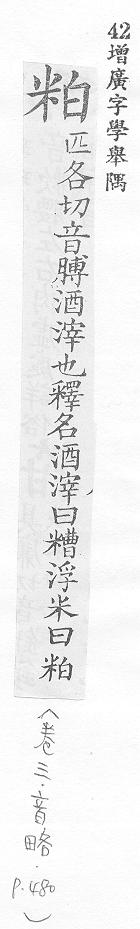 42增廣字學舉隅
粕 匹各切音膊酒滓也釋名酒滓曰糟浮米曰粕
(卷三.音略.P.480)